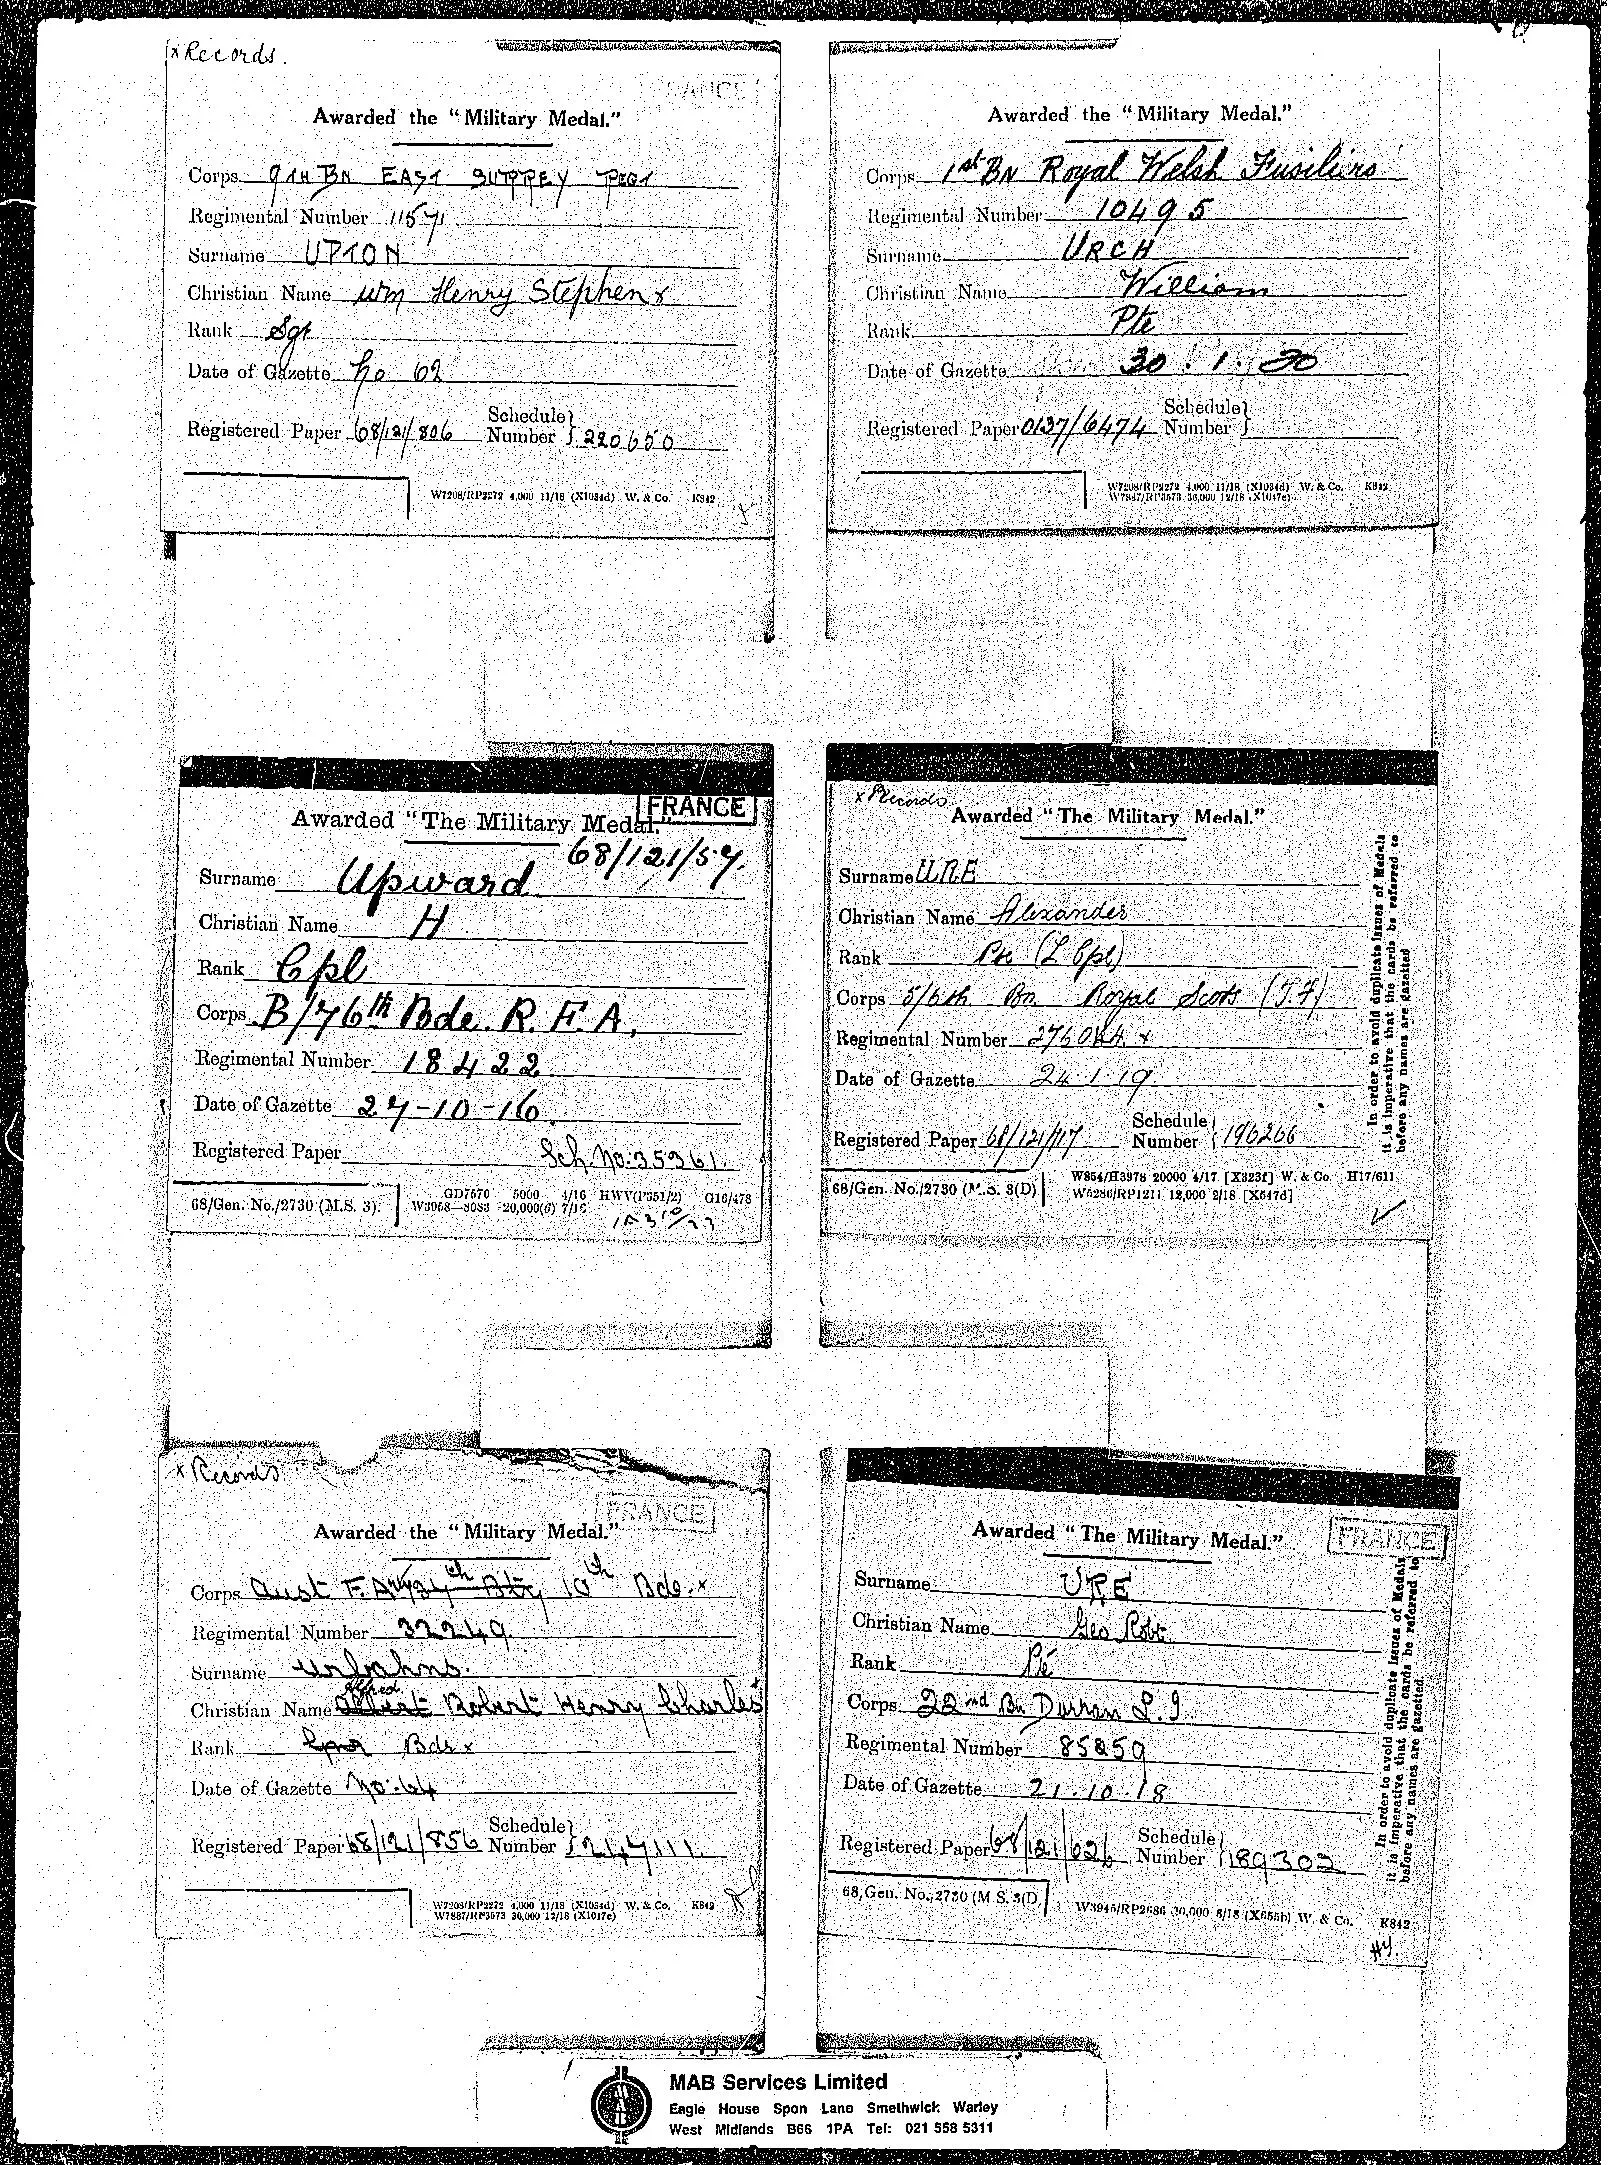 x Records.
FRANCE
Awarded the "Military Medal."
Corps 9TH BN EAST SURREY REGT
Regimental Number 11571
Surname UPTON
Christian Name Wm Henry Stephen x
Rank Sgt
Date of Gazette No 62
Registered Paper 68/121/806 Schedule Number } 220650
W7208/RP2272 4,000 11/18 (X1034d) W. & Co. K842
Awarded the "Military Medal."
Corps 1st BN Royal Welsh Fusiliers
Regimental Number 10495
Surname URCH
Christian Name William
Rank Pte
Date of Gazette 30.1.20
Registered Paper 0137/6474 Schedule Number }
W7208/RP2272 4,000 11/18 (X1034d) W. & Co. K842
W7887/RP3573 30,000 12/18 (X1017e)
FRANCE
Awarded "The Military Medal."
68/121/57.
Surname Upward
Christian Name H
Rank Cpl
Corps B/76th Bde. R.F.A.
Regimental Number 18422
Date of Gazette 27-10-16.
Registered Paper Sch. No: 35361.
68/Gen. No./2730 (M.S. 3).
GD7570 5000 4/16 HWV(P351/2) G16/478
W3068—8083 20,000(6) 7/16
x Records
Awarded "The Military Medal."
Surname URE
Christian Name Alexander
Rank Pte (L Cpl)
Corps 5/6th Bn Royal Scots (T.F)
Regimental Number x
Date of Gazette 24.1.19
Registered Paper 68/121/117 Schedule Number { 196266
68/Gen. No./2730 (M.S. 3(D)
W854/H3978 20000 4/17 [X323f] W. & Co. H17/611
W5280/RP1211 12,000 2/18 [X647d]
In order to avoid duplicate issues of Medals
it is imperative that the cards be referred to
before any names are gazetted
x Records
FRANCE
Awarded the "Military Medal."
Corps Aust F.A. 10th Bde. x
Regimental Number 32249
Surname Urbahns.
Christian Name Alfred Robert Henry Charles
Rank Bdr x
Date of Gazette No: 64
Registered Paper 68/121/856 Schedule Number } 247111.
W7208/RP2272 4,000 11/18 (X1034d) W. & Co. K842
W7887/RP3573 30,000 12/18 (X1017e)
Awarded "The Military Medal."
FRANCE
Surname URE
Christian Name Geo Robt
Rank Pte
Corps 22nd Bn Durham L.I.
Regimental Number 85259
Date of Gazette 21.10.18
Registered Paper 68/121/626 Schedule Number { 189302
68/Gen. No./2730 (M.S. 3(D)
W3945/RP2686 30,000 8/18 (X655b) W. & Co. K842
In order to avoid duplicate issues of Medals
it is imperative that the cards be referred to
before any names are gazetted.
MAB Services Limited
Eagle House Spon Lane Smethwick Warley
West Midlands B66 1PA Tel: 021 558 5311